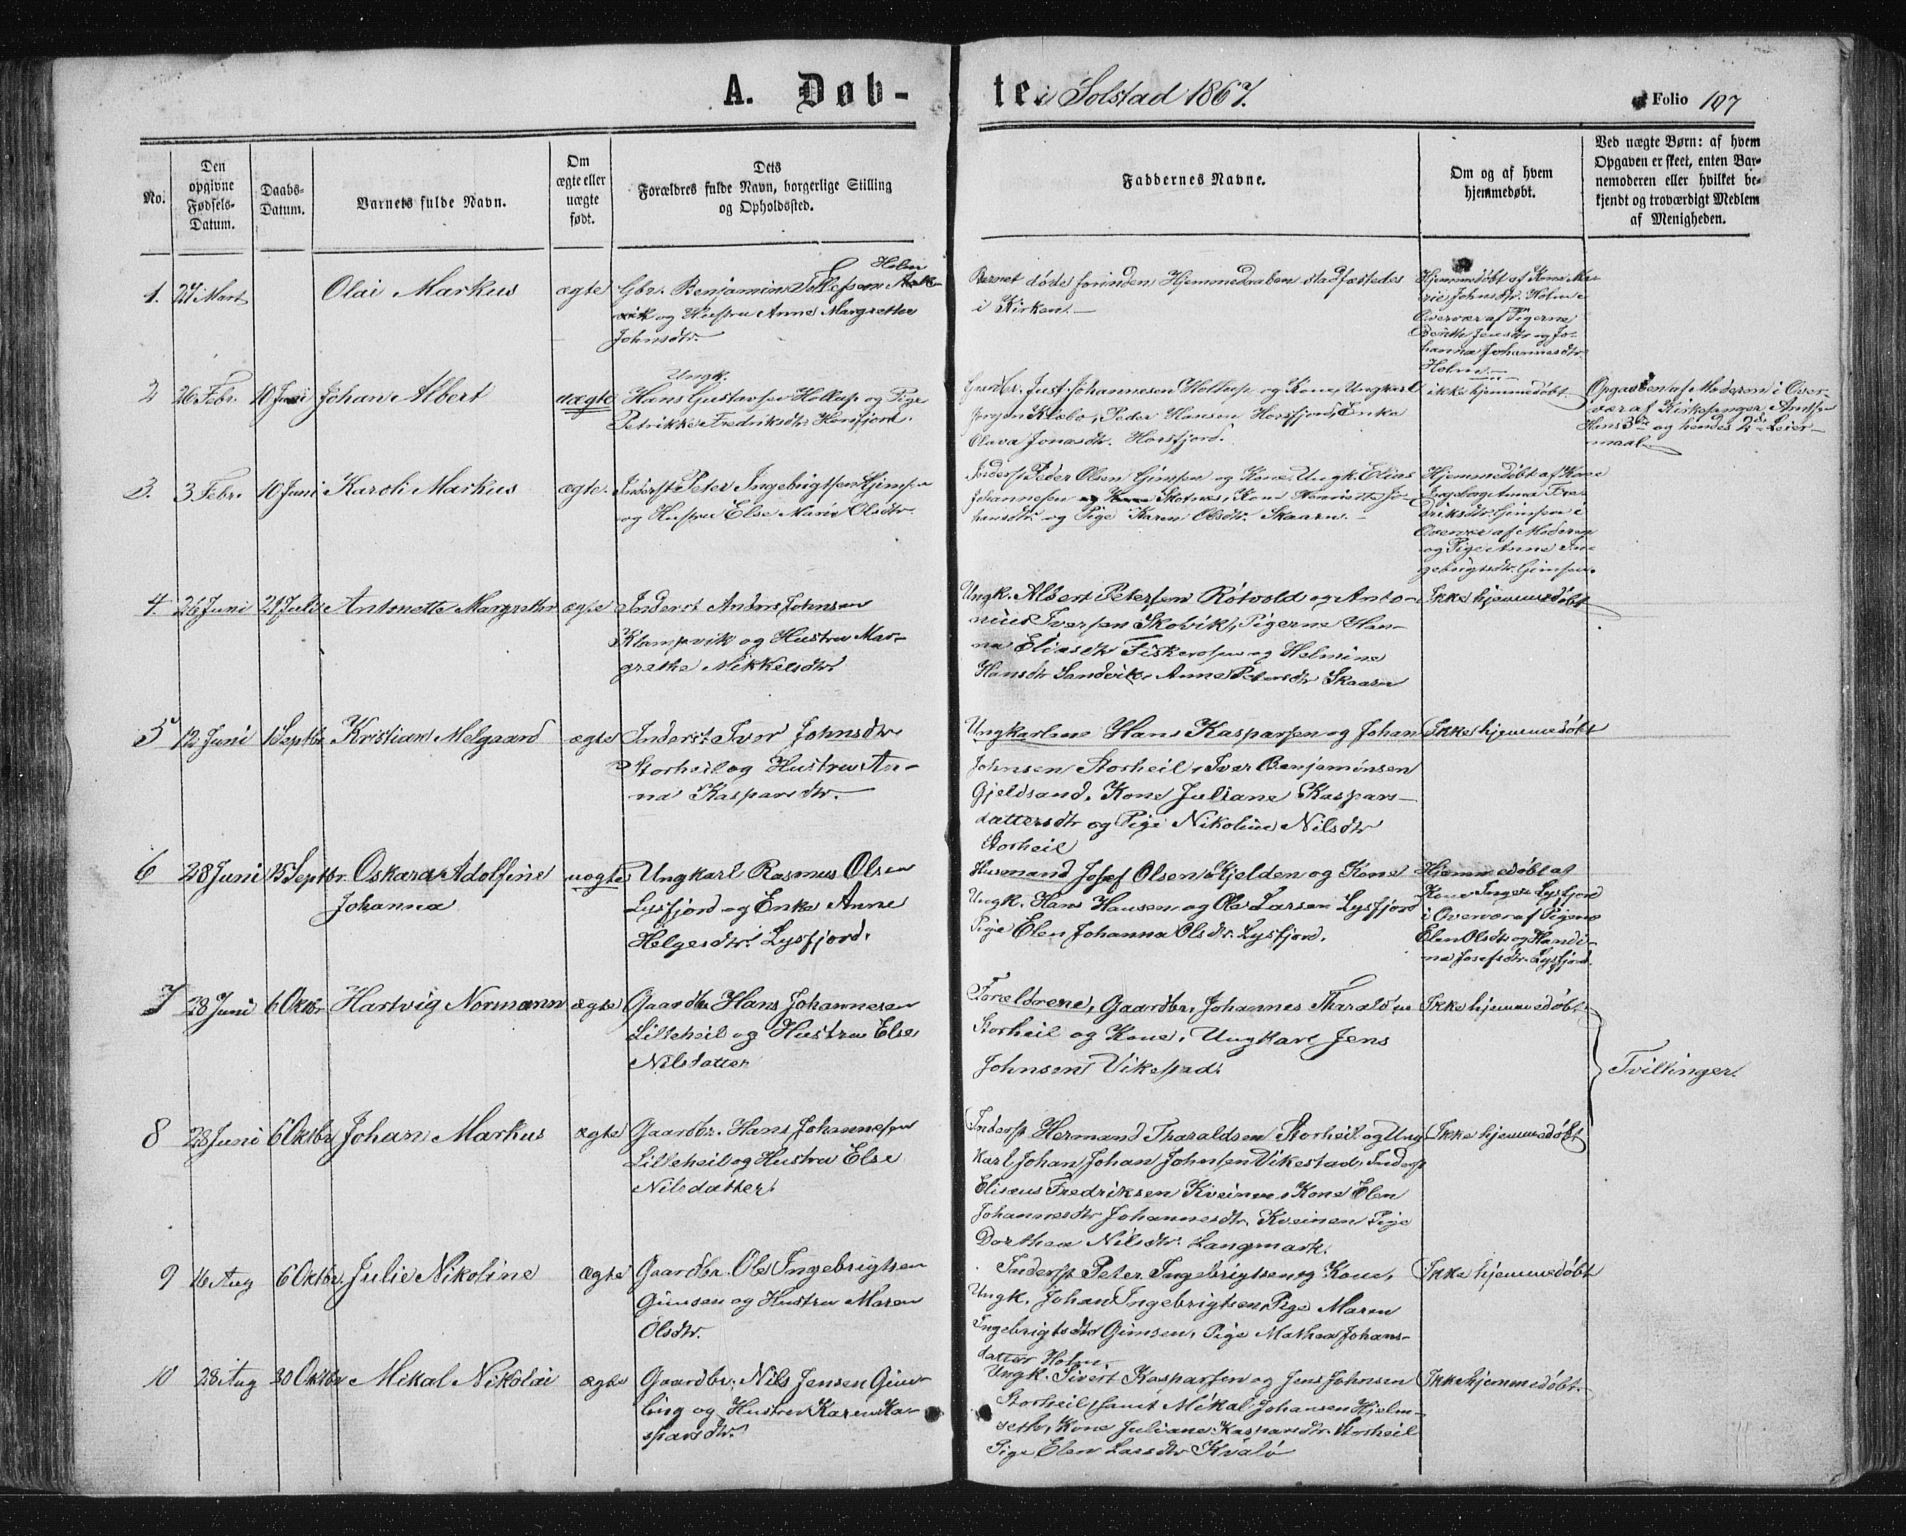 A. Døb-
te i Solstad 1867.
Folio 107
No.
Den opgivne Fødsels-Datum.
Daabs-Datum.
Barnets fulde Navn.
Om ægte eller uægte født.
Dets Forældres fulde Navn, borgerlige Stilling og Opholdssted.
Faddernes Navne.
Om og af hvem hjemmedøbt.
Ved uægte Børn: af hvem Opgaven er skeet, enten Barnemoderen eller hvilket bekjendt og troværdigt Medlem af Menigheden.
1. 24 Mart
Olai Markus
ægte
Holm
Gbr. Benjamin
og Hustru Anne Margrethe
Johnsdtr.
Barnet døde forinden Hjemmedaaben stadfæstedes
i Kirken.
Hjemmedøbt af Kone Ma-
rie Johnsdtr. Holm i
Overvær af Pigerne
Jensdtr og Jo-
hanna Johannesdtr
Holm.
2 26 Febr. 10 Juni Johan Albert
uægte
Ungk.
Hans Gustavsen Hollup og Pige
Petrikke Fredriksdtr Horsfjord.
Gaardbr. Just Johannesen og Kone, Ungkarl
Jørgen Klæbo, Peder Hansen Horsfjord, Enke
Oliva Jonasdtr. Horsfjord.
ikke hjemmedøbt
Opgaven af Moderen i Over-
vær af Kirkesanger
Hans 3die og hendes 2det Leier-
maal
3. 3 Febr. 10 Juni Karoli Markus
ægte.
Inderst Peter Ingebrigtsen Gimsen
og Hustru Else Marie Olsdtr.
Inderst Peder Olsen Gimsen og Kone, Ungk. Elias
Johannesen Skotnes, Kone Henriette Jo-
hansdtr. og Pige Karen Olsdtr. Skaaren.
Hjemmedøbt af Kone
Ingeborg Anna Fre-
driksdtr. Gimsen i
Overvær af Moderen
og Pige Anne In-
gebrigtsdtr. Gimsen.
4. 26 Juni 21 Juli Antonette Margrethe
ægte
Inderst Anders Johnsen
Klampvik og Hustru Mar-
grethe Mikkelsdtr
Ungk. Albert Petersen Rötvold og Anto-
nius Iversen Skovik, Pigerne Han-
na Eliasdtr Fiskerosen og Helmine
Hansdtr Sandvik, Anne Petersdtr Skaaren
Ikke hjemmedøbt
5 12 Juni 1 Septbr Kristian Melgaard
ægte
Inderst Iver Johnsdtr
Storheil og Hustru An-
na Kasparsdtr.
Ungkarlene Hans Kaspersen og Johan
Johnsen Storheil, Iver Benjaminsen
Gjeldsand, Kone Juliane Kaspars-
dattersdtr og Pige Nikoline Nilsdtr
Storheil
Ikke hjemmedøbt
6 28 Juni 15 Septbr. Oskara Adolfine
Johanna
uægte
Ungkarl Rasmus Olsen
Lysfjord og Enke Anne
Helgesdtr. Lysfjord.
Husmand Josef Olsen Kjelden og Kone
Ungk. Hans Hansen og Ole Larsen Lysfjord
Pige Elen Johanna Olsdtr. Lysfjord.
Hjemmedøbt af
Kone Inger Lysfjord
i Overvær af Pigerne
Elen Olsdtr og Handi-
na Josefsdtr. Lysfjord.
7 28 Juni 6 Oktbr Hartvig Normann
ægte
Gaardbr Hans Johannesen
Lilleheil og Hustru Else
Nilsdatter
Forældrene, Gaardbr. Johannes Tharaldsen
Storheil og Kone, Ungkarl Jens
Johnsen Vikestad.
Ikke hjemmedøbt
Tvillinger.
8 28 Juni 6 Oktbr Johan Markus
ægte
Gaardbr. Hans Johannesen
Lilleheil og Hustru Else
Nilsdatter.
Inderst Hermand Tharaldsen Storheil og Ung-
karl Johan Johan Johnsen Vikestad, Inderst
Elisæus Fredriksen Kveinen, Kone Elen
Johannesdtr Johannesdtr. Kveinen Pige
Dorthea Nilsdtr. Langmark.
Ikke hjemmedøbt
9 16 Aug 6 Oktbr. Julie Nikoline
Ægte
Gaardbr. Ole Ingebrigtsen
Gimsen og Hustru Maren
Olsdtr.
Inderst Peter Ingebrigtsen og Kone,
Ungk. Johan Ingebrigtsen, Pige Maren
Ingebrigtsdtr Gimsen, Pige Mathea Johans-
datter Holm.
Ikke hjemmedøbt
10 28 Aug 20 Oktbr Mikal Nikolai
ægte
Gaardbr. Nils Jensen Gim-
ling og Hustru Karen Ka-
sparsdtr.
Ungk. Sivert Kaspersen og Jens Johnsen
Storheil, samt Mikal Johansen Hjelm-
seth, Kone Juliane Kasparsdtr. Storheil
Pige Elen Larsdtr Kvalø
Ikke hjemmedøbt.